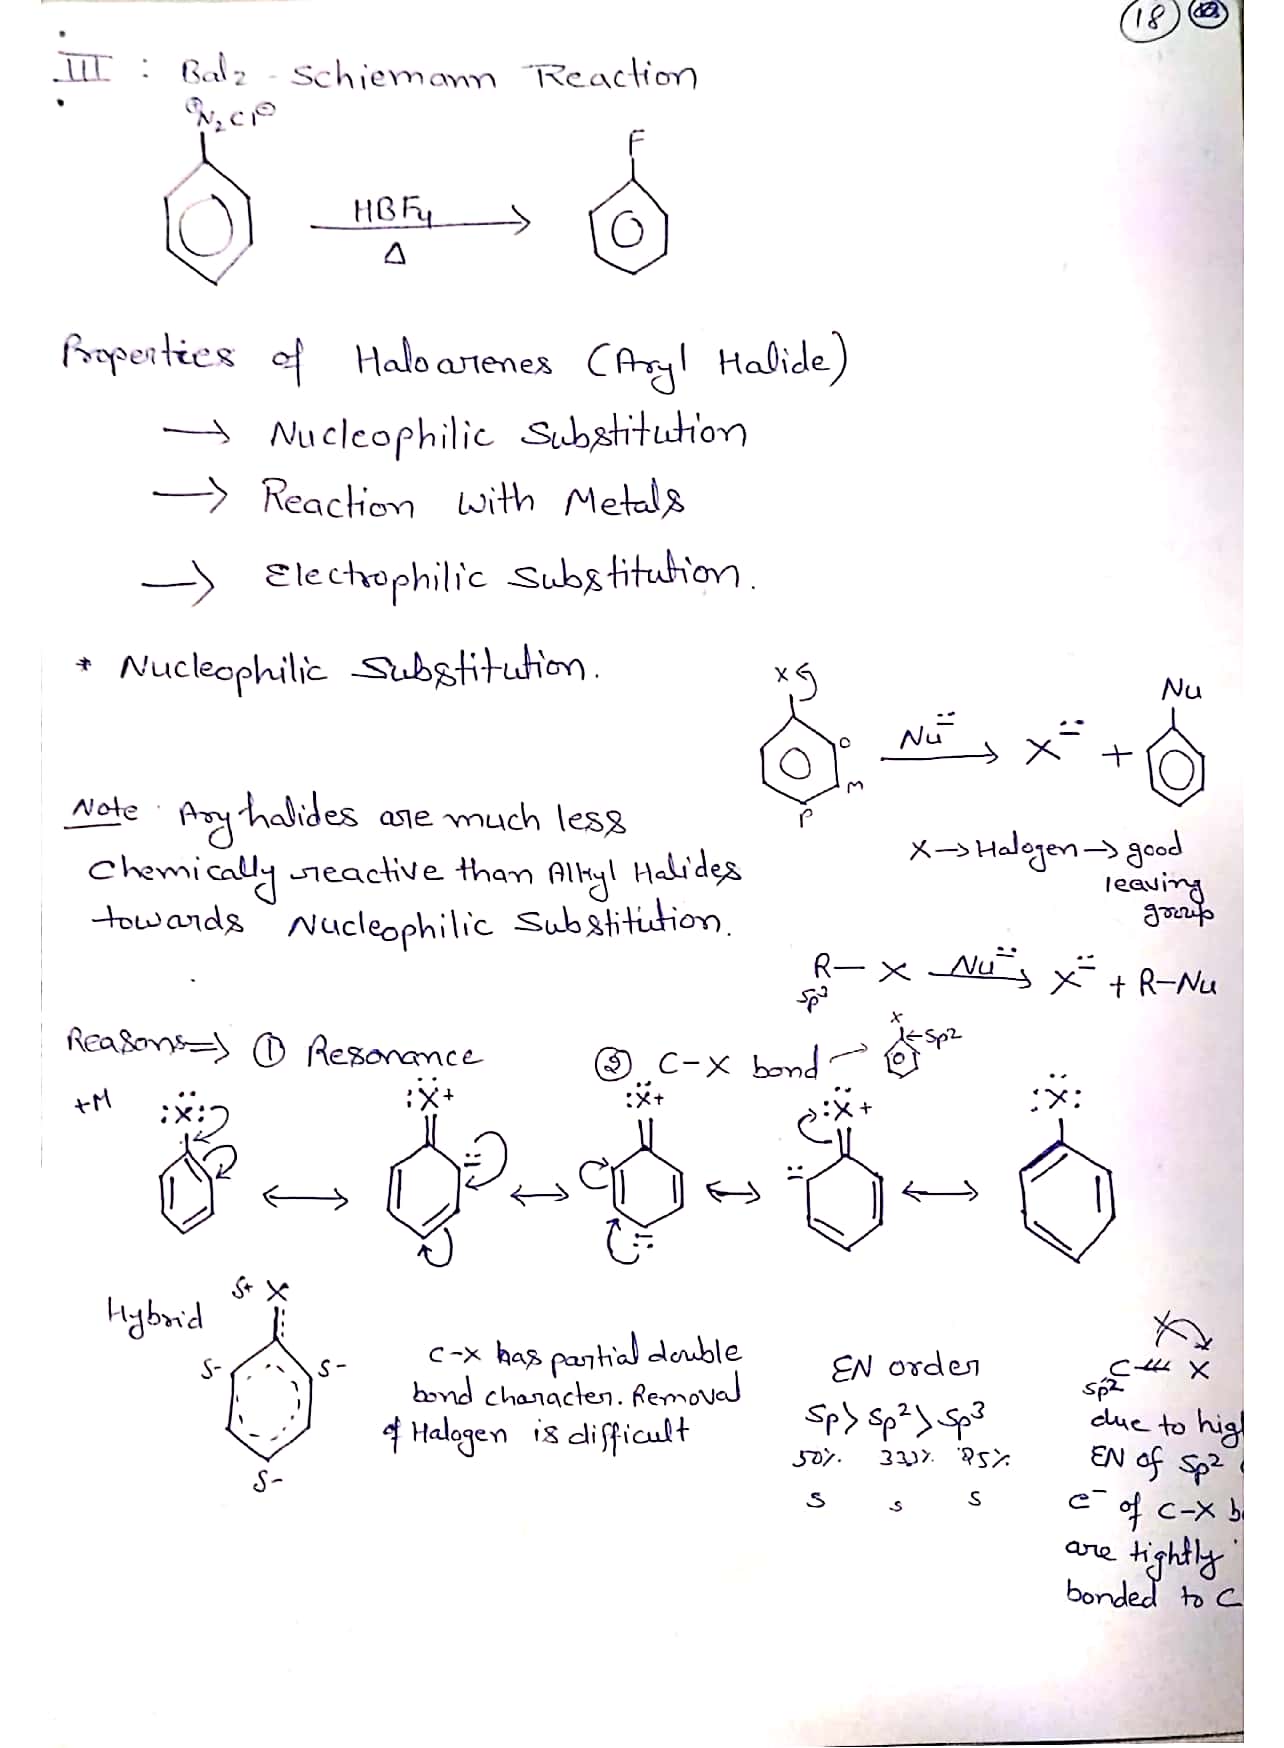 18
III : Balz - Schiemann Reaction
⊕N₂Cl⊖
F
HBF4
Δ
Properties of Haloarenes (Aryl Halide)
→ Nucleophilic Substitution
→ Reaction with Metals
→ Electrophilic Substitution.
* Nucleophilic Substitution.
X Nu
o m p
Nu⁻ → X⁻ +
Note : Aryhalides are much less
Chemically reactive than Alkyl Halides
towards Nucleophilic Substitution.
X → Halogen → good
leaving
group
R–X Nu⁻ → X⁻ + R–Nu
sp³
Reasons ⇒ ① Resonance
② C–X bond →
X
← sp2
+M
:X: ↔ :X+ ↔ :X+ ↔ :X+ ↔ :X:
Hybrid
δ+ X
δ- δ-
δ-
C-X has partial double
bond character. Removal
of Halogen is difficult
EN order
Sp > Sp² > Sp³
50% 33.3% 25%
S S S
C X
sp2
due to high
EN of sp2
e⁻ of C-X b
are tightly
bonded to C